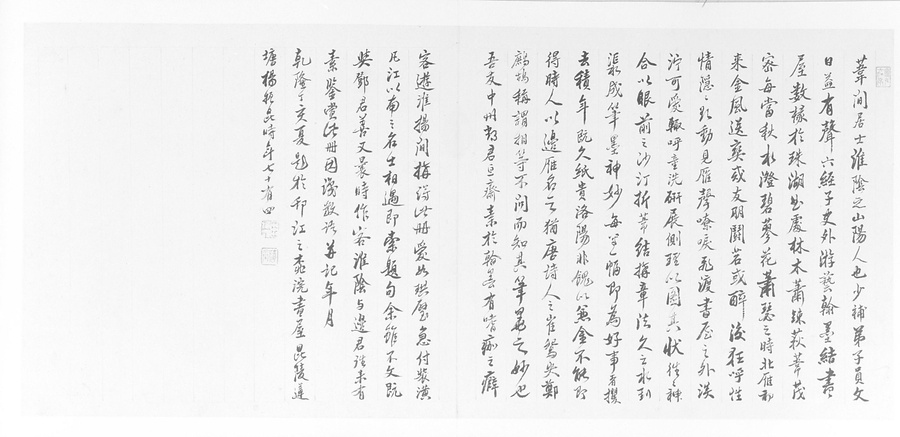 葦間居士淮陰之山陽人也少補弟子員文
日益有聲六經子史外游藝翰墨結書
屋數椽於珠湖出處林木蕭疎荻葦茂
密每當秋水澄碧蓼花蕭瑟之時北雁初
來金風送爽或友朋鬪茗或醉後狂呼性
情隱隱躍動見雁聲嘹唳飛渡書屋之外淡
濘可愛輒呼童洗研展側理以圖其狀性之神
合以眼前之沙汀折葦結構章法久之水到
渠成筆墨神妙每寫一幅即為好事者攫
去積年既久紙貴洛陽非餽以兼金不能即
得時人以邊雁名之猶唐詩人之崔鴛央鄭
鷓鴣稱謂相等不問而知其筆墨之妙也
吾友中州君亘齋素於翰墨有嗜痂之癖
客遊淮揚間購得此冊愛如珙璧急付裝潢
凡江以南之名士相遇即索題句余雖不文既
與鄧君善又曩時作客淮陰與邊君後未有
素鑒賞此冊因淺數語並記年月
乾隆丁亥夏題於邗江之書屋毘陵蓮
塘楊時年七十有四